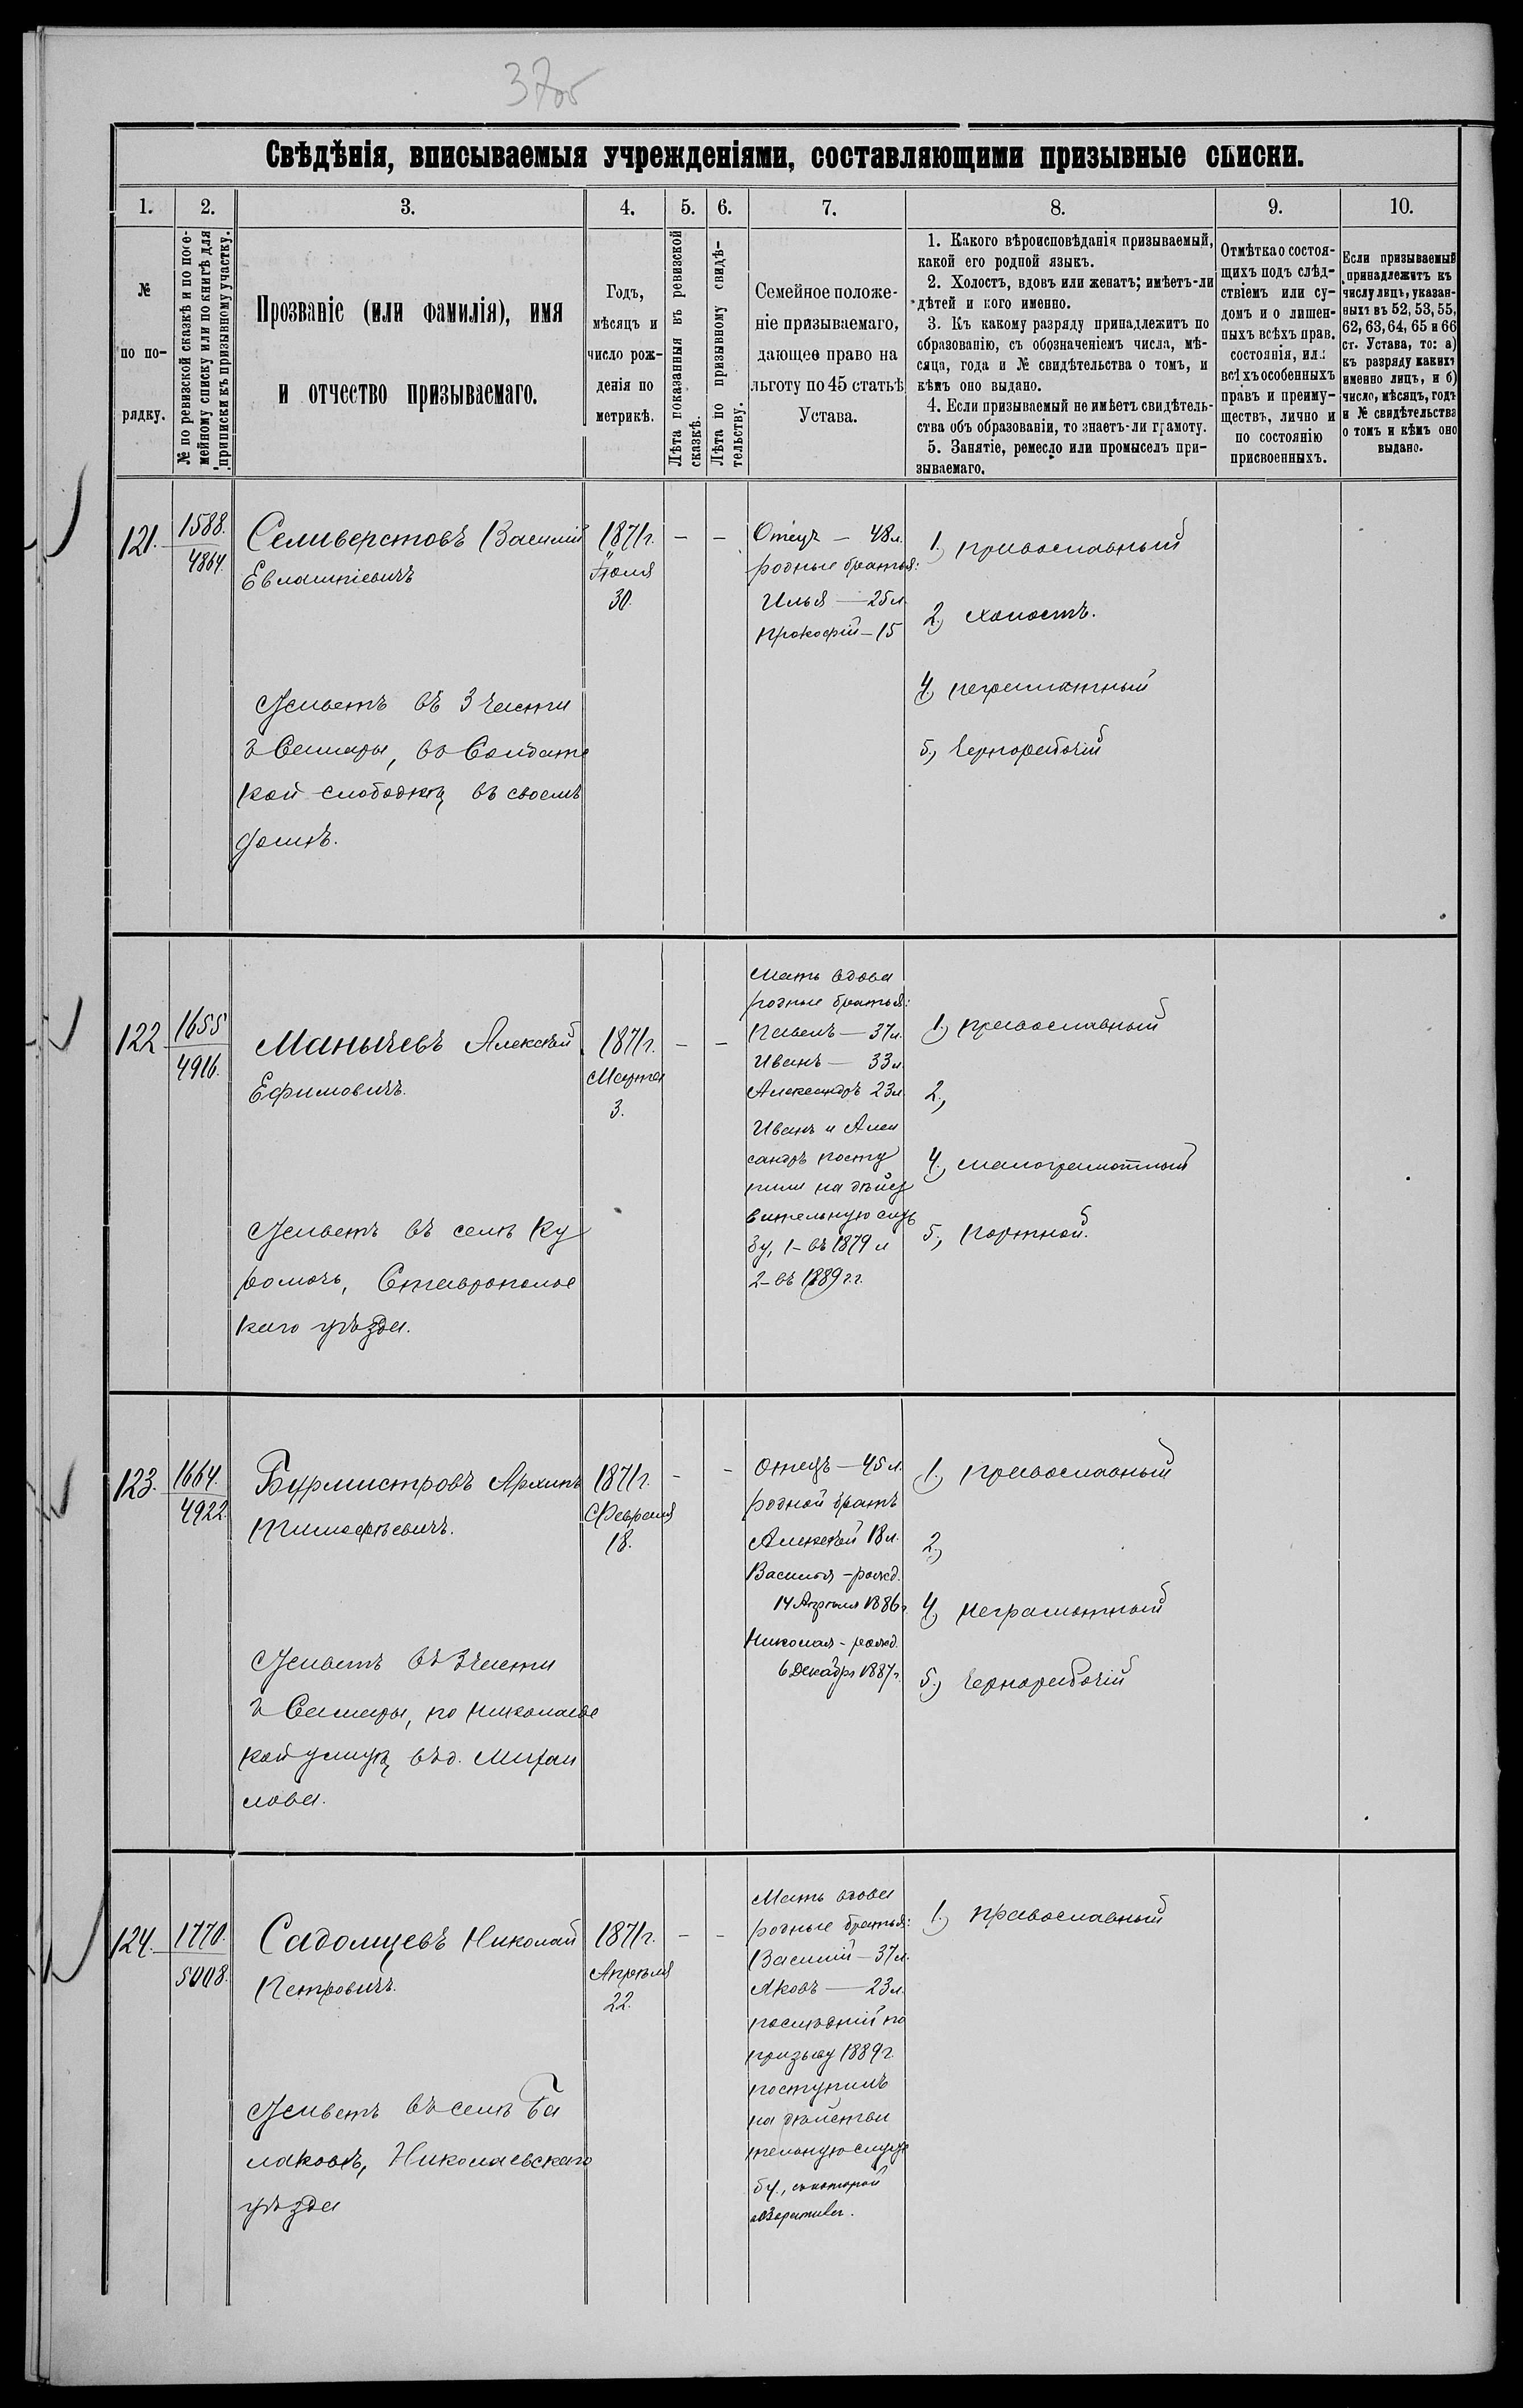 37об
Свѣдѣнія, вписываемыя учрежденіями, составляющими призывные списки.
1. 2. 3. 4. 5. 6. 7. 8. 9. 10.
№
по по-
рядку.
№ по ревизской сказкѣ и по посе-
мейному списку или по книгѣ для
приписки къ призывному участку.
Прозваніе (или фамилія), имя
и отчество призываемаго.
Годъ,
мѣсяцъ и
число рож-
денія по
метрикѣ.
Лѣта показанныя въ ревизской
сказкѣ.
Лѣта по призывному свидѣ-
тельству.
Семейное положе-
ніе призываемаго,
дающее право на
льготу по 45 статьѣ
Устава.
1. Какого вѣроисповѣданія призываемый,
какой его родной языкъ.
2. Холостъ, вдовъ или женатъ; имѣетъ-ли
дѣтей и кого именно.
3. Къ какому разряду принадлежитъ по
образованію, съ обозначеніемъ числа, мѣ-
сяца, года и № свидѣтельства о томъ, и
кѣмъ оно выдано.
4. Если призываемый не имѣетъ свидѣтель-
ства объ образованіи, то знаетъ-ли грамоту.
5. Занятіе, ремесло или промыселъ при-
зываемаго.
Отмѣтка о состоя-
щихъ подъ слѣд-
ствіемъ или су-
домъ и о лишен-
ныхъ всѣхъ прав.
состоянія, или
всѣхъ особенныхъ
правъ и преиму-
ществъ, лично и
по состоянію
присвоенныхъ.
Если призываемый
принадлежитъ къ
числу лицъ, указан-
ныхъ въ 52, 53, 55,
62, 63, 64, 65 и 66
ст. Устава, то: а)
къ разряду какихъ
именно лицъ, и б)
число, мѣсяцъ, годъ
и № свидѣтельства
о томъ и кѣмъ оно
выдано.
121.
1588.
4864.
Селиверстовъ Василій
Евлампіевичъ
Живетъ въ 3 части
г Самары, въ Солдатс
кой слободкѣ въ своемъ
домѣ.
1871г.
Іюля
30.
– –
Отецъ – 48л.
родные братья:
Илья – 25л.
Прокофій – 15
1, православный
2, холостъ.
4, неграмотный
5, чернорабочій
122
1655
4916.
Манычевъ Алексѣй
Ефимовичъ.
Живетъ въ селѣ Ку
ромочь, Ставропольс
каго уѣзда.
1871г.
Марта
3.
– –
Мать вдова
родные братья:
Павелъ – 37л.
Иванъ – 33л.
Александръ 23л.
Иванъ и Алек
сандръ посту
пили на дѣйст
вительную служ
бу, 1-въ 1879 и
2-въ 1889 г.г.
1, православный
2,
4, малограмотный
5, портной.
123.
1664.
4922.
Бурмистровъ Архипъ
Тимофѣевичъ.
Живетъ въ 3 части
г Самары, по Николаевс
кой улицѣ въ д. Михай
лова.
1871г.
Февраля
18.
– –
Отецъ – 45л.
родной братъ
Алексѣй 18л.
Василія – рожд.
14 Апрѣля 1886г.
Николая – рожд.
6 Декабря 1887г.
1, православный
2,
4, неграмотный
5, чернорабочій
124.
1770.
5008.
Садомцевъ Николай
Петровичъ.
Живетъ въ селѣ Ба
лаковѣ, Николаевскаго
уѣзда
1871г.
Апрѣля
22.
– –
Мать вдова
родные братья:
Василій – 37л.
Яковъ – 23л.
послѣдній по
призыву 1889г.
поступилъ
на дѣйстви
тельную служ
бу, съ которой
1, православный